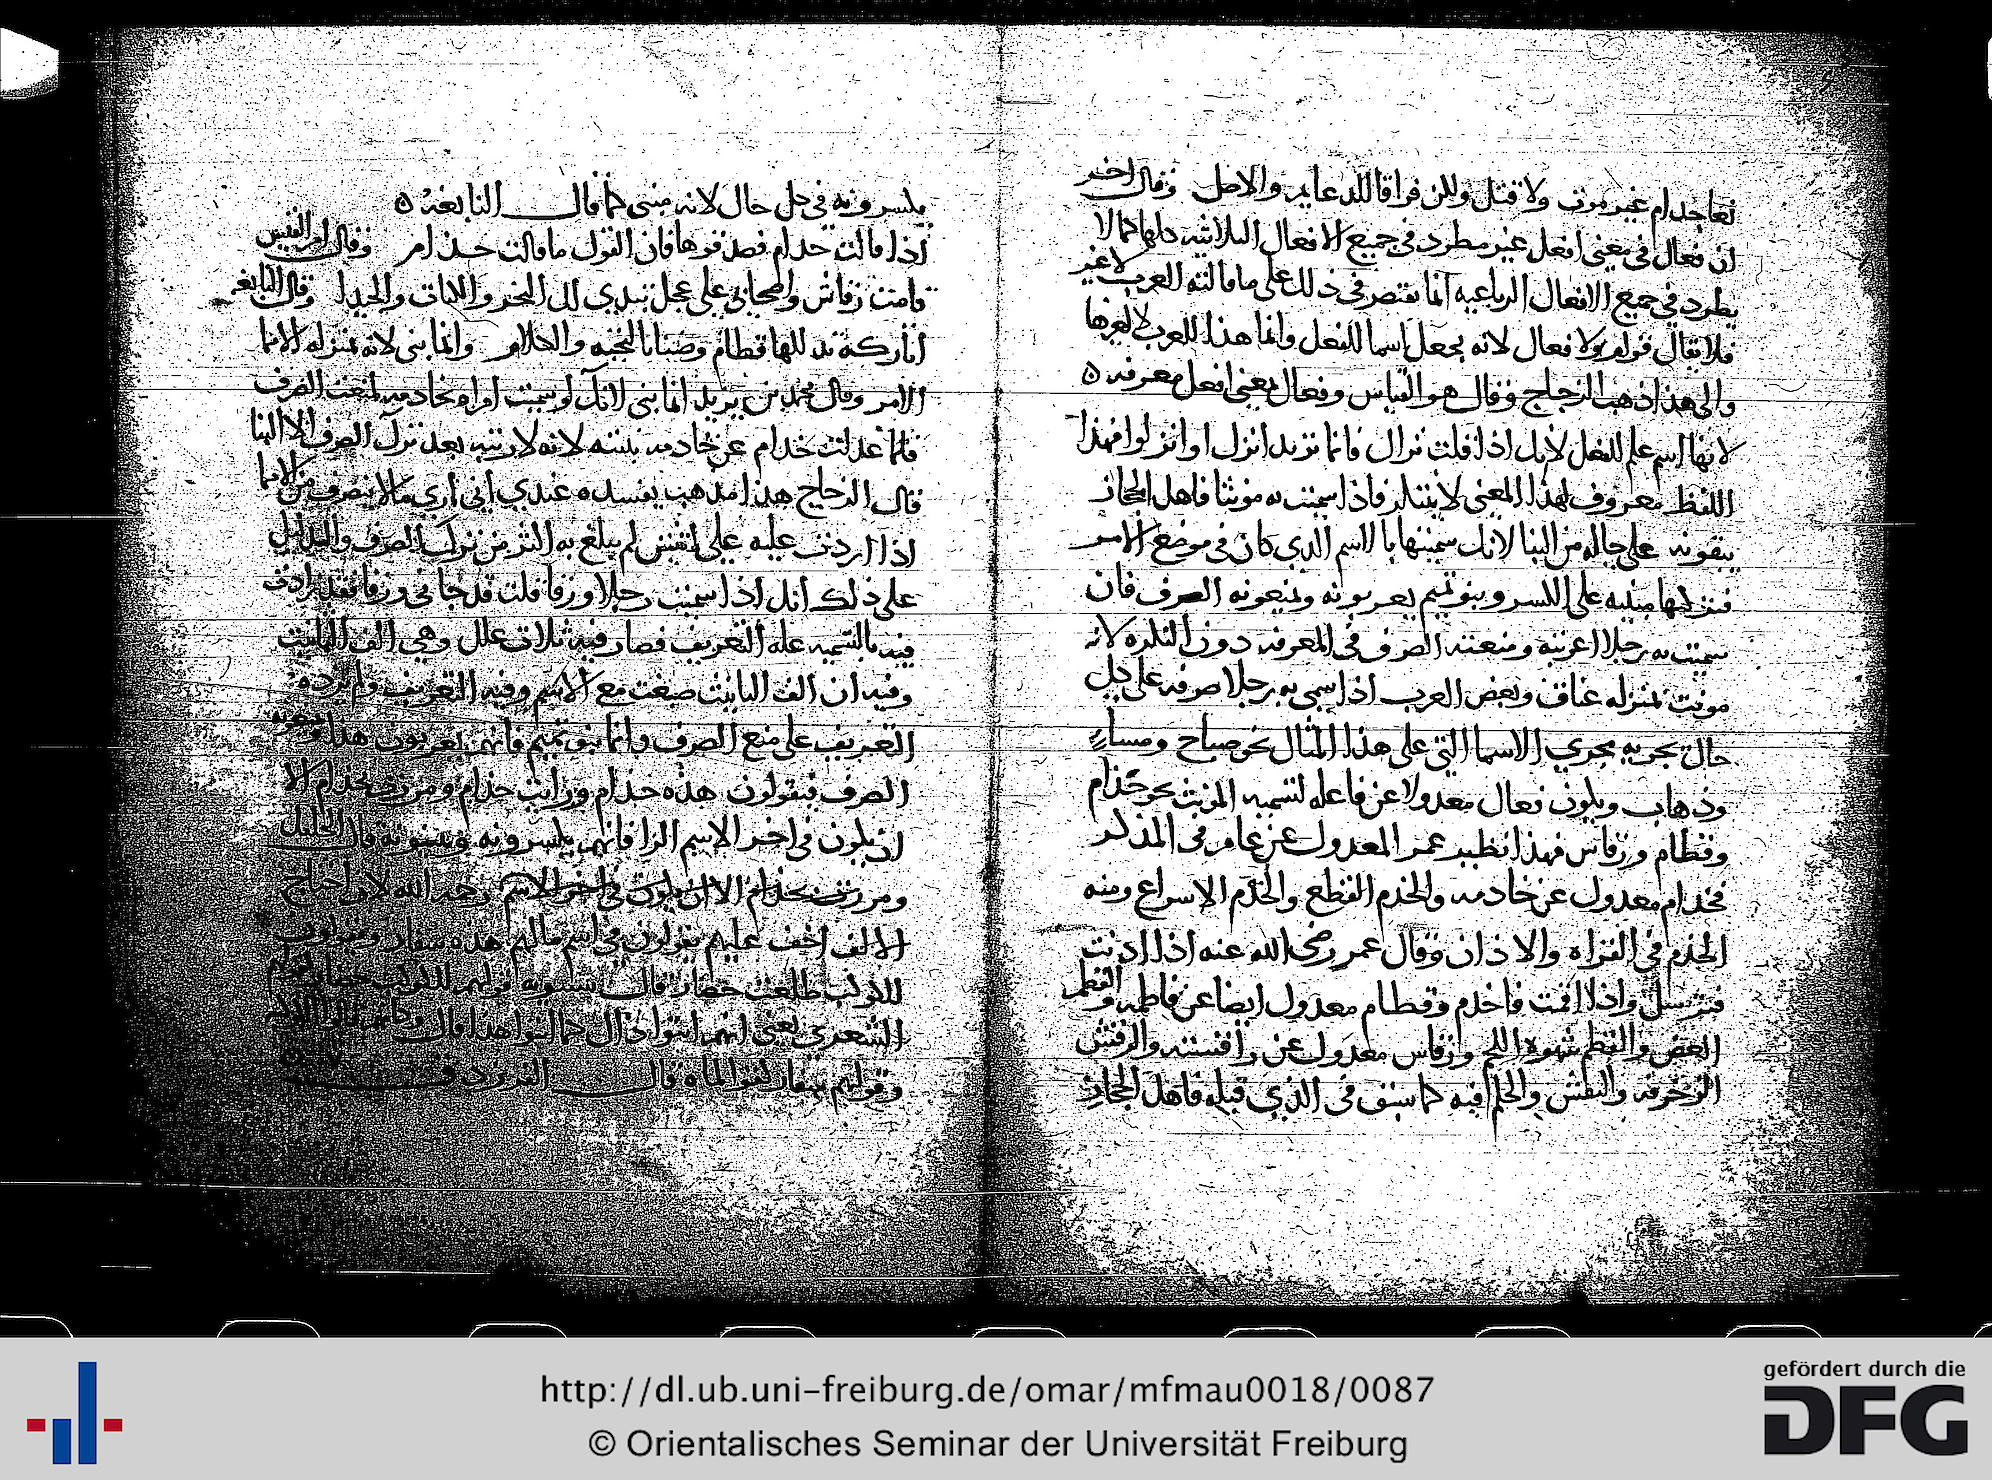 نعا جذام غير موت ولا قتل ولكن فراقا للدعايم والاصل وقال اخر
ان فعال في معنى افعل غير مطرد في جميع الافعال الثلاثيه كلها كما لا
يطرد في جميع الافعال الرباعيه انما يقتصر في ذلك على ما قالته العرب لا غير
فلا يقال قوام ولا فعال لانه يجعل اسما للفعل وانما هذا للعرب لا لغيرها
والى هذا ذهب الزجاج وقال هو القياس وفعال بمعنى افعل معرفه ه
لانها اسم علم للفعل لانك اذا قلت نزال فانما تريد انزل او انزلوا فهذا
اللفظ معروف لهذا المعنى لا يتنكر فاذا سميت به مونثا فاهل الحجاز
يبقونه على حاله من البنا لانك سميتها بالاسم الذي كان في موضع الامر
فتتركها مبنيه على الكسر وبنو تميم يعربونه ويمنعونه الصرف فان
سميت به رجلا اعربته ومنعته الصرف في المعرفه دون النكره لانه
مونث بمنزله عناق وبعض العرب اذا سمي به رجلا صرفه على كل
حال يجريه مجرى الاسما التي على هذا المثال نحو صباح ومساء
وذهاب ويكون فعال معدولا عن فاعله لتسميه المونث نحو حذام
وقطام ورقاش فهذا نظير عمر المعدول عن عامر في المذكر
فحذام معدول عن حاذمه والحذم القطع والحذم الاسراع ومنه
الحذم في القراه والاذان وقال عمر رضي الله عنه اذا اذنت
فترسل واذا اقمت فاحذم وقطام معدول ايضا عن قاطمه والقطم
العض والقطم شهوه اللحم ورقاش معدول عن راقشه والرقش
الزخرفه والنقش والحكم فيه كما سبق في الذي قبله فاهل الحجاز
يكسرونه في كل حال لانه مبني كما قال النابغه ه
اذا قالت حذام فصدقوها فان القول ما قالت حذام وقال امرؤ القيس
قامت رقاش واصحابي على عجل تبدي لك النحر واللبات والجيدا وقال النابغه
اتاركه تدللها قطام وضنا بالتحيه والكلام وانما بني لانه بمنزله الاسما
الامر وقال محمد بن يزيد انما بني لانك لو سميت امراه بحاذمه لمنعت الصرف
فلما عدلت حذام عن حاذمه بنيته لانه لا رتبه بعد ترك الصرف الا البنا
قال الزجاج هذا مذهب يفسده عندي اني ارى ما لا ينصرف من الاسما
اذا اردت عليه على اثنتين لم يبلغ به اكثر من ترك الصرف والدليل
على ذلك انك اذا سميت رجلا ورقا قلت قد جاني ورقا فقد زادت
فيه بالتسميه عله التعريف فصار فيه ثلاث علل وهي الف التانيث
وفيه ان الف التانيث صيغت مع الاسم وفيه التعريف ولم يزده
التعريف على منع الصرف وانما بنو تميم فانهم يعربون هذا ويمنعونه
الصرف فيقولون هذه حذام ورايت حذام ومررت بحذام الا
ان يكون في اخر الاسم الرا فانهم يكسرونه ويبنونه قال الخليل
ومررت بحذام الا ان يكون في اخر الاسم رحمه الله لان اجناح
الالف اخف عليهم يقولون في اسم ما لهم هذه سفار ويقولون
للكوكب طلعت حضار قال سيبويه قولهم للكوكب حضار
الشعرى يعني انهم انثوا ذاك كما انثوا هذا قال
وقولهم سفار انثوا الماه قال الفرزدق
http://dl.ub.uni-freiburg.de/omar/mfmau0018/0087
© Orientalisches Seminar der Universität Freiburg
gefördert durch die
DFG